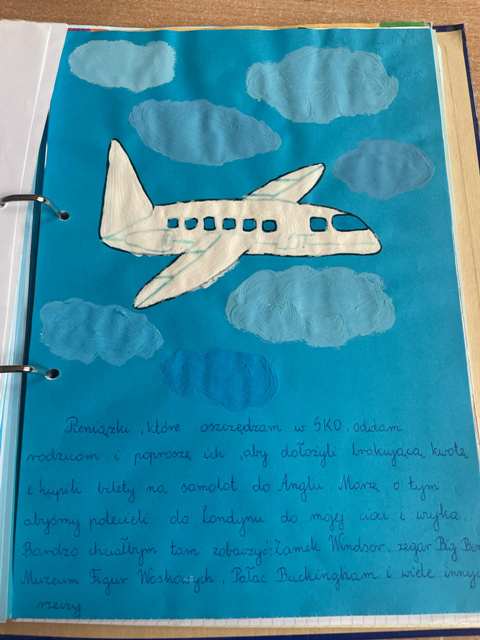 Pieniążki, które oszczędzam w SKO, oddam
rodzicom i poproszę ich, aby dołożyli brakującą kwotę
i kupili bilety na samolot do Anglii. Marzę o tym
abyśmy polecieli do Londynu do mojej cioci i wujka.
Bardzo chciałbym tam zobaczyć Zamek Windsor, zegar Big Ben
Muzeum Figur Woskowych, Pałac Buckingham i wiele innych
rzeczy